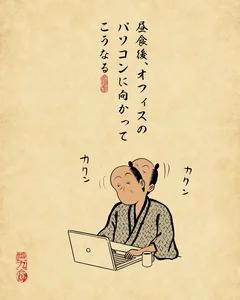 昼食後、オフィスの
パソコンに向かって
こうなる
カクン
カクン